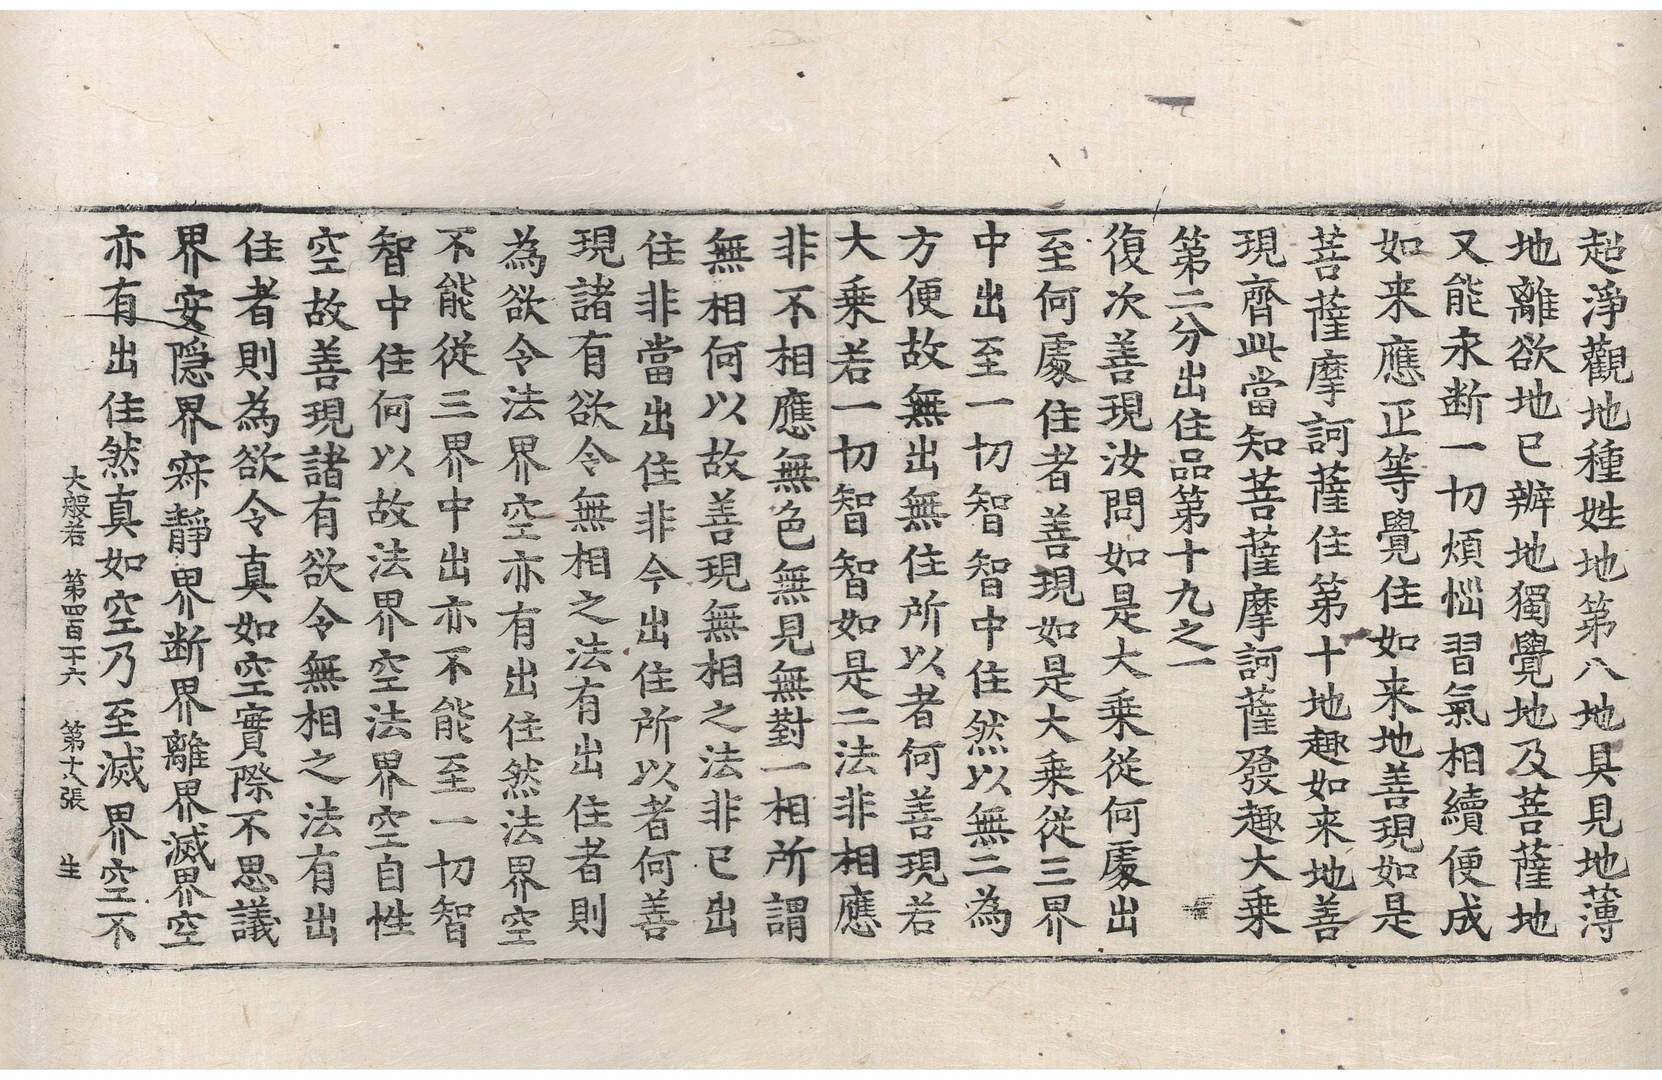 超淨觀地種姓地第八地具見地薄
地離欲地已辦地獨覺地及菩薩地
又能永断一切煩惱習氣相續便成
如来應正等覺住如来地善現如是
菩薩摩訶薩住第十地趣如来地善
現齊此當知菩薩摩訶薩發趣大乗
第二分出住品第十九之一
復次善現汝問如是大乗從何處出
至何處住者善現如是大乗從三界
中出至一切智智中住然以無二為
方便故無出無住所以者何善現若
大乗若一切智智如是二法非相應
非不相應無色無見無對一相所謂
無相何以故善現無相之法非已出
住非當出住非今出住所以者何善
現諸有欲令無相之法有出住者則
為欲令法界空亦有出住然法界空
不能從三界中出亦不能至一切智
智中住何以故法界空法界空自性
空故善現諸有欲令無相之法有出
住者則為欲令真如空實際不思議
界安隱界寂靜界断界離界滅界空
亦有出住然真如空乃至滅界空不
大般若 第四百十六 第十八張 生